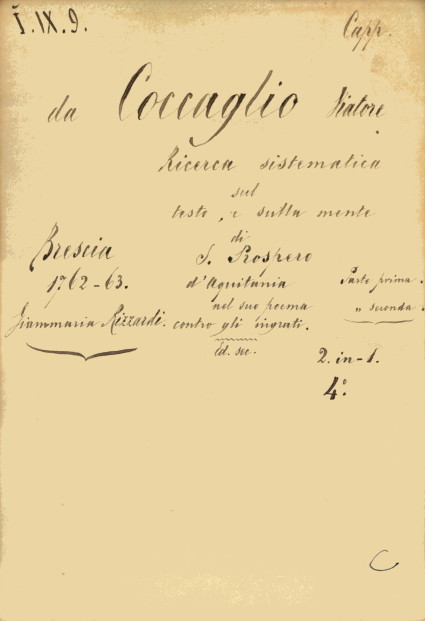 I.IX.9.
Capp.
da Coccaglio Viatore
Ricerca sistematica
sul
testo, e sulla mente
di
Brescia
S. Prospero
1762-63.
d'Aquitania
Parte prima.
" seconda.
nel suo poema
Giammaria Rizzardi.
contro gli ingrati.
Ed. sec.
2. in-1.
4°.
C